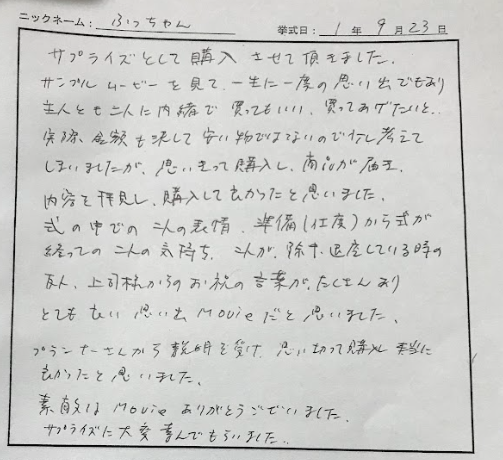 ニックネーム: ふっちゃん 挙式日: 1年9月23日
サプライズとして購入させて頂きました。
サンプルムービーを見て、一生に一度の思い出でもあり
主人とも二人に内緒で買ってもいい、買ってあげたいと..
実際、金額も決して安い物ではないので少し考えて
しまいましたが、思いきって購入し、商品が届き、
内容を拝見し、購入して良かったと思いました。
式の中での二人の表情、準備(仕度)から式が
終っての二人の気持ち、二人が、退座している時の
友人、上司様からのお祝の言葉が、たくさんあり
とても良い思い出Movieだと思いました。
プランナーさんから説明を受け、思い切って購入し本当に
良かったと思いました。
素敵なMovieありがとうございました。
サプライズに大変喜んでもらいました..